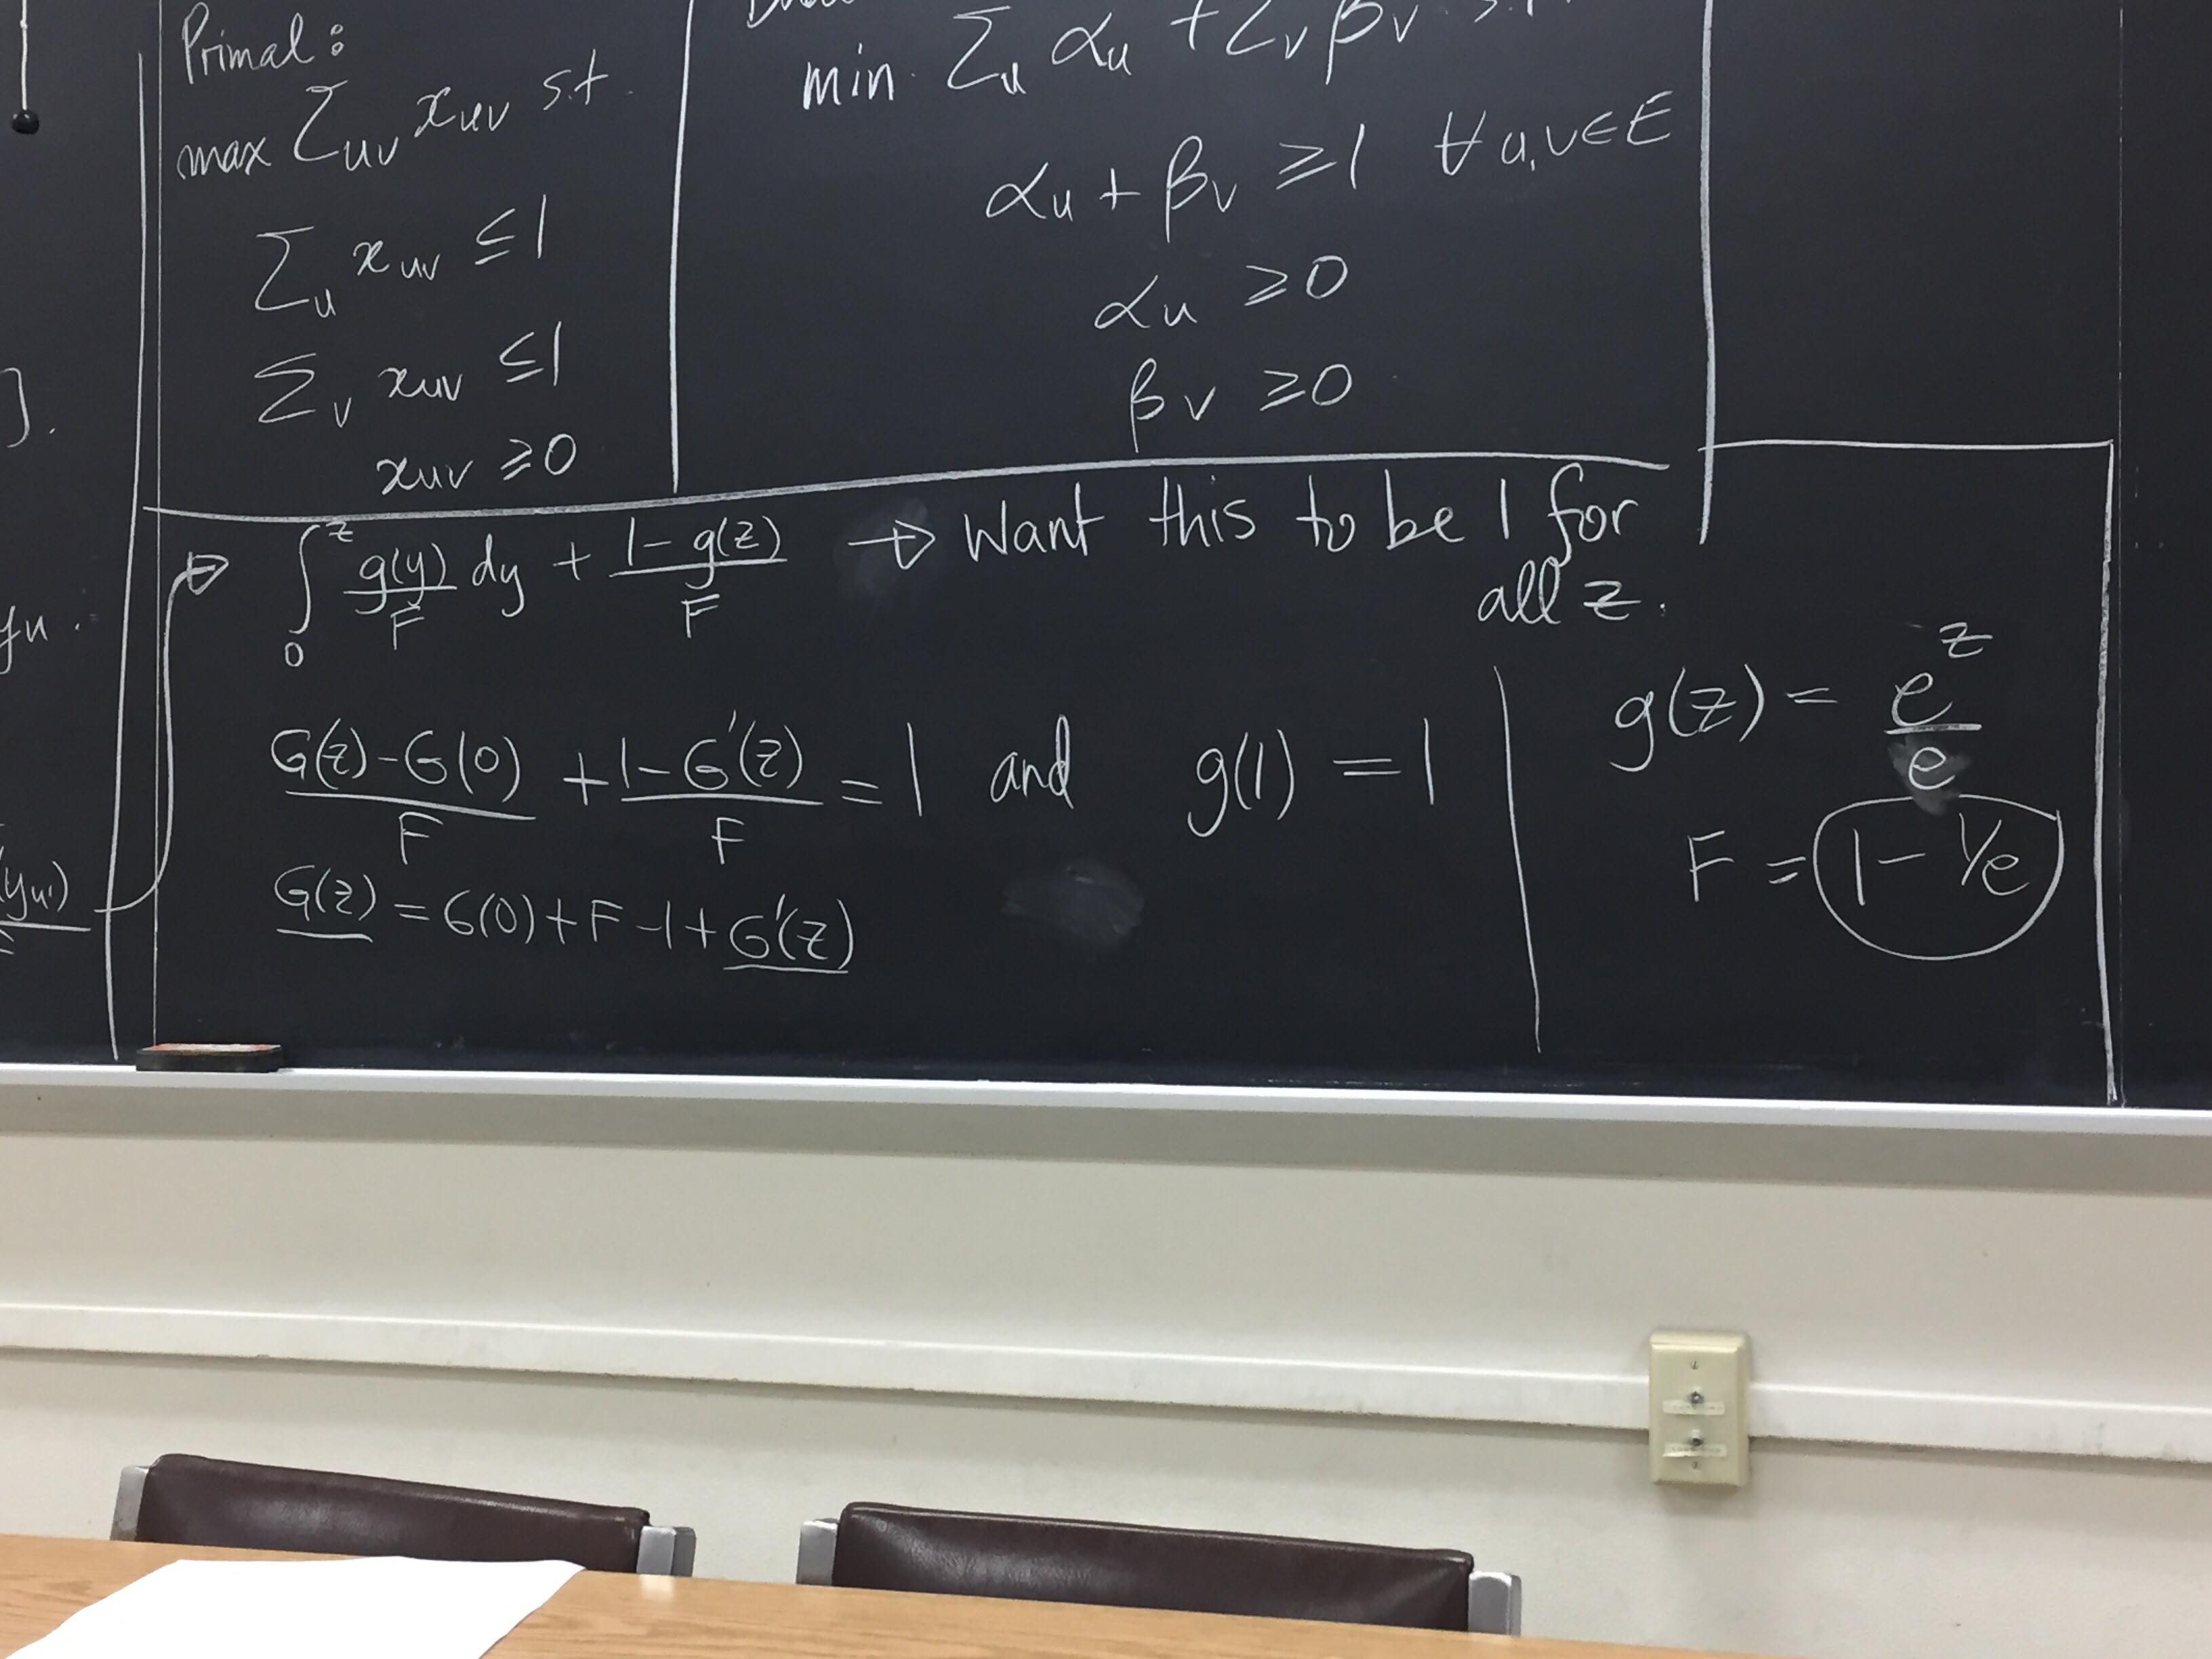 Primal:
max Σuv xuv s.t.
Σu xuv ≤ 1
Σv xuv ≤ 1
xuv ≥ 0
min. Σu αu + Σv βv s.t.
αu + βv ≥ 1 ∀ u,v ∈ E
αu ≥ 0
βv ≥ 0
].
yu.
(yu')
∫₀ᶻ g(y)/F dy + (1 - g(z))/F → Want this to be 1 for
all z.
(G(z) - G(0))/F + (1 - G'(z))/F = 1 and g(1) = 1
G(z) = G(0) + F - 1 + G'(z)
g(z) = eᶻ/e
F = 1 - 1/e